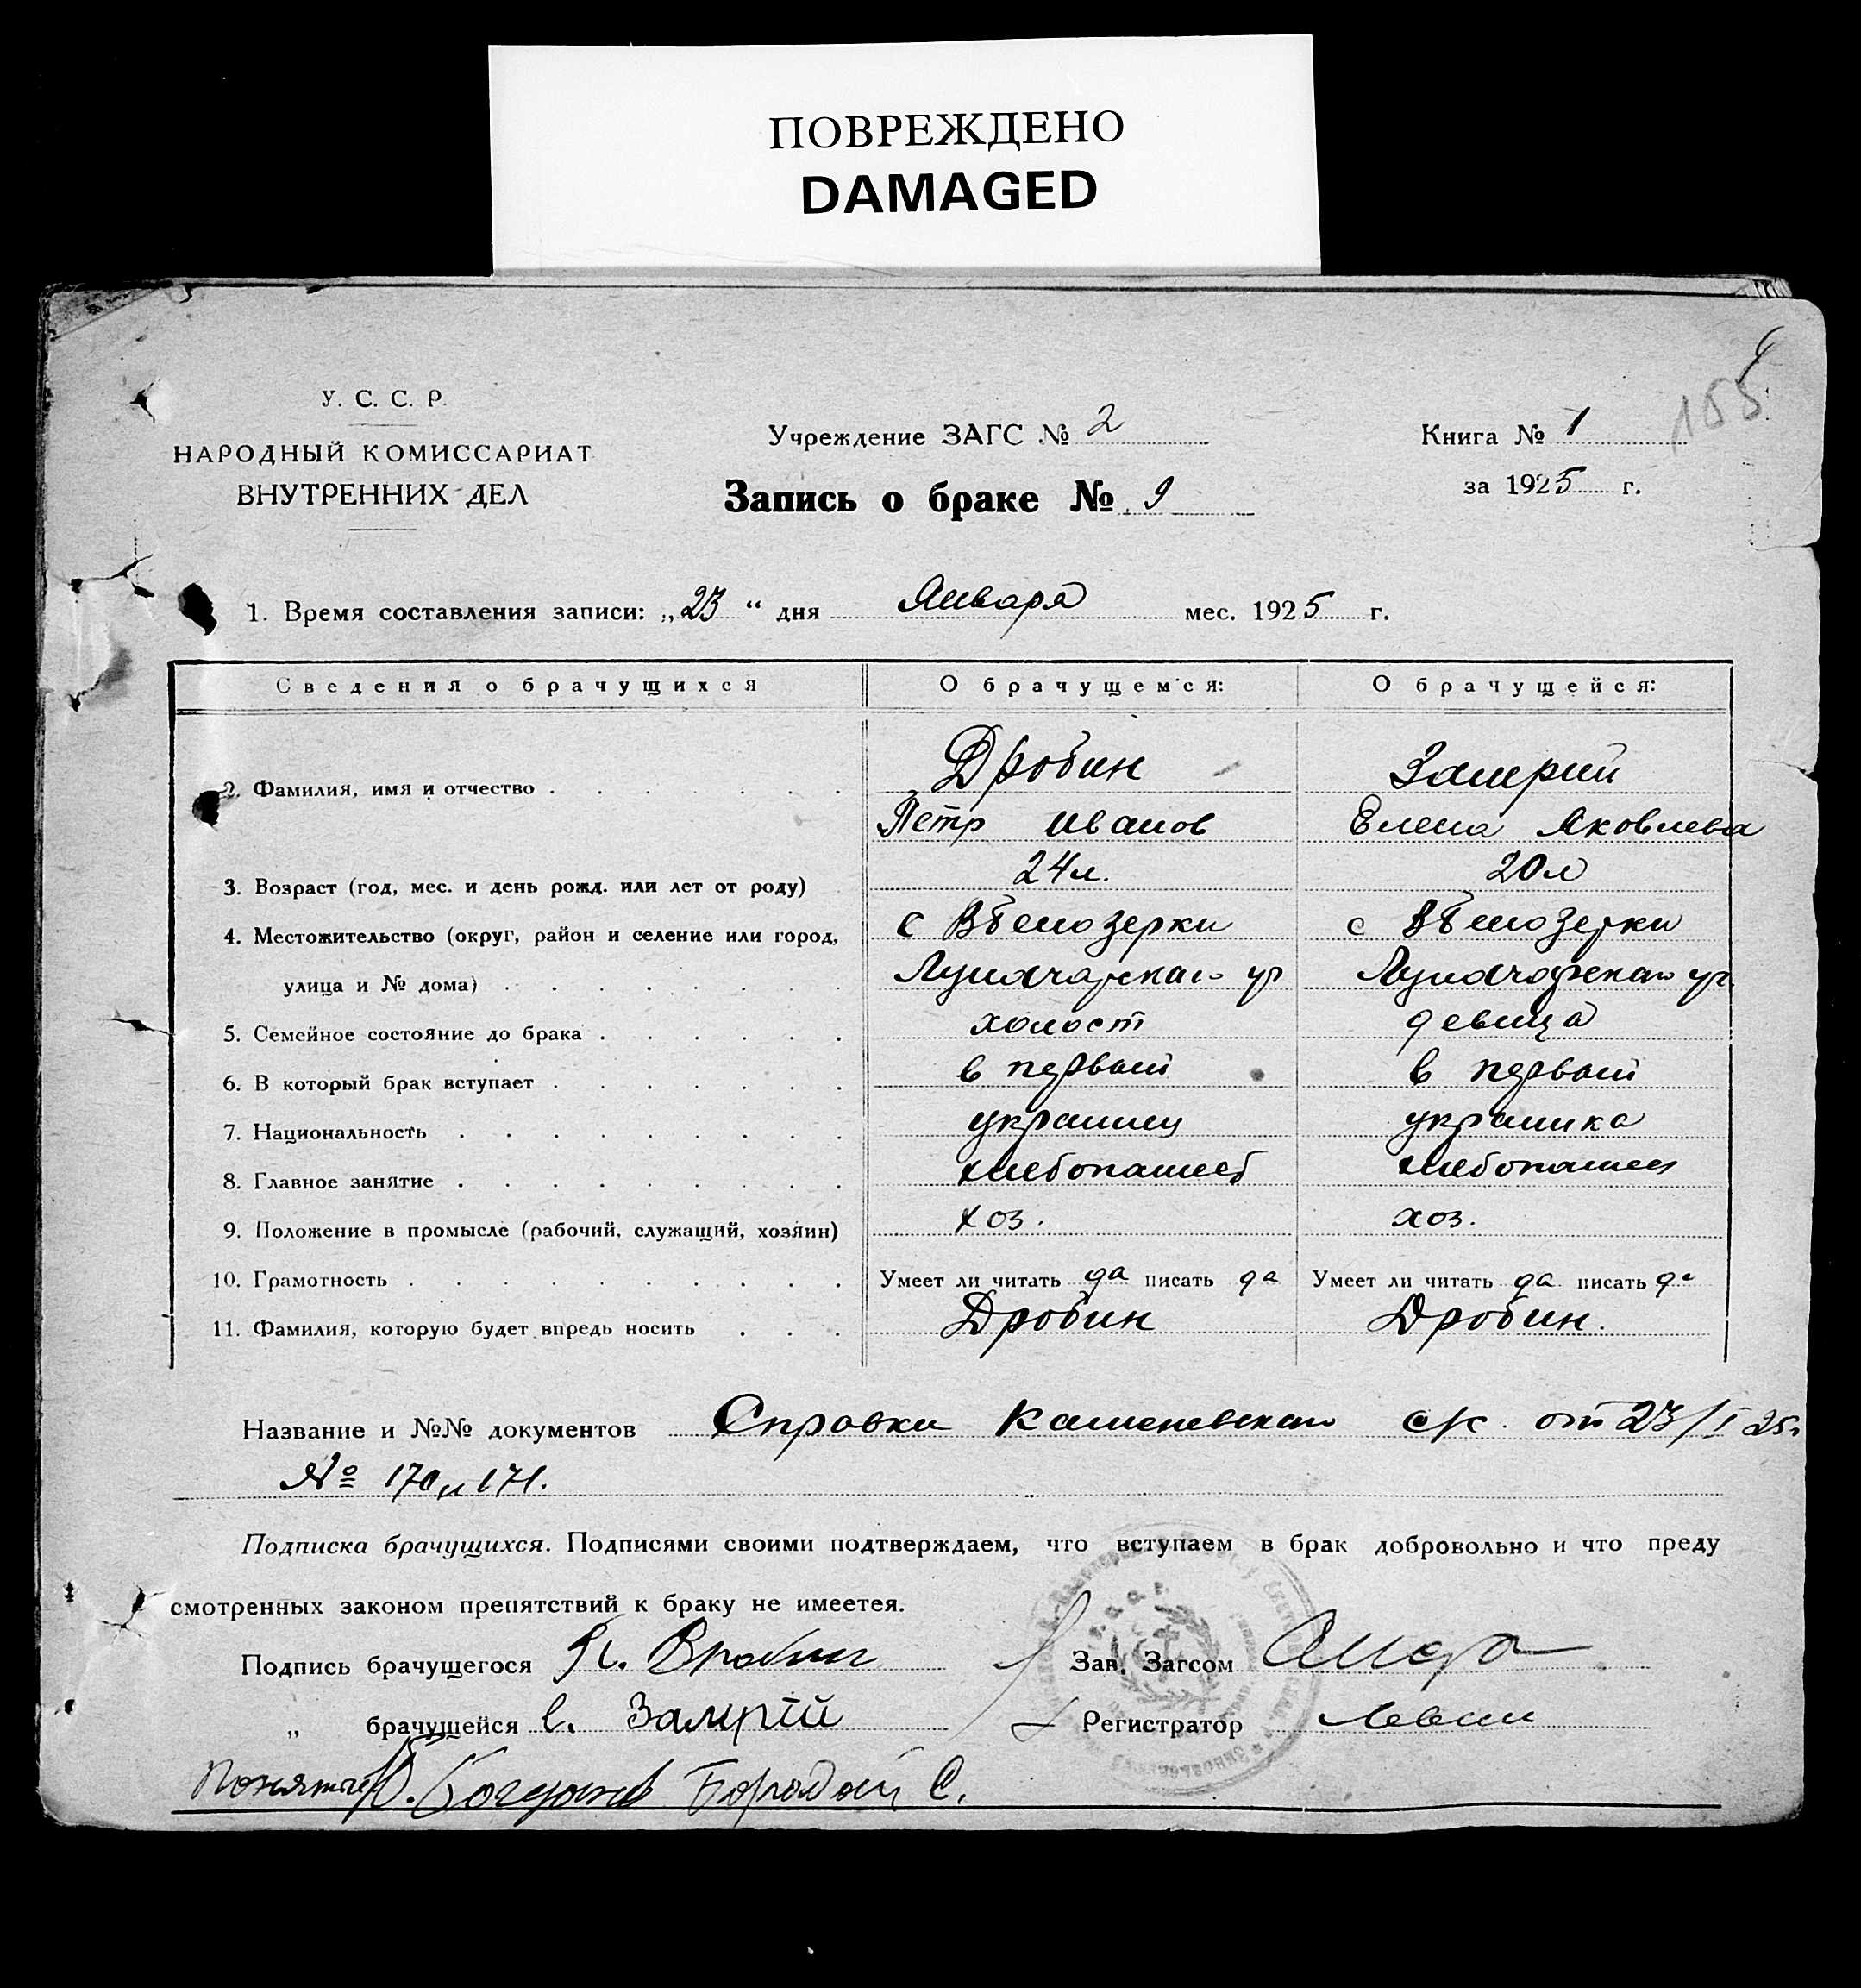 ПОВРЕЖДЕНО
DAMAGED
155
У. С. С. Р.
НАРОДНЫЙ КОМИССАРИАТ
ВНУТРЕННИХ ДЕЛ
Учреждение ЗАГС № 2
Запись о браке № 9
Книга № 1
за 1925 г.
1. Время составления записи: „23“ дня Января мес. 1925 г.
Сведения о брачущихся О брачущемся: О брачущейся:
Дробин Замрий
2. Фамилия, имя и отчество
Петр Иванов Елена Яковлева
3. Возраст (год, мес. и день рожд. или лет от роду) 24 л. 20 л
4. Местожительство (округ, район и селение или город, с ВБелозерки с ВБелозерки
улица и № дома) Луначарская ул Луначарская ул.
5. Семейное состояние до брака холост девица
6. В который брак вступает в первый в первый
7. Национальность украинец украинка
8. Главное занятие хлебопашец хлебопашец
9. Положение в промысле (рабочий, служащий, хозяин) хоз. хоз.
10. Грамотность Умеет ли читать да писать да Умеет ли читать да писать да
11. Фамилия, которую будет впредь носить Дробин Дробин.
Название и №№ документов Справки Каменевского с/с. от 23/I 25г
№ 170 и 171.
Подписка брачущихся. Подписями своими подтверждаем, что вступаем в брак добровольно и что преду
смотренных законом препятствий к браку не имеетея.
Подпись брачущегося П. Дробин Зав. Загсом
„ брачущейся Е. Замрій Регистратор Левин
Понятые Бородай С.